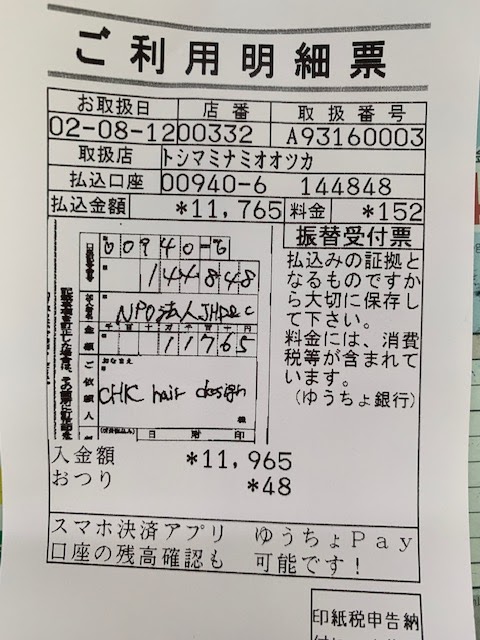 ご利用明細票
お取扱日 店番 取扱番号
02-08-12 00332 A93160003
取扱店 トシマミナミオオツカ
払込口座 00940-6 144848
払込金額 *11,765 料金 *152
振替受付票
払込みの証拠と
なるものですか
ら大切に保存し
て下さい。
料金には、消費
税等が含まれて
います。
(ゆうちょ銀行)
00940-6
144848
NPO法人JHD&C
金額 千百十万千百十円
11765
おなまえ
ご依頼人 CHK hair design 様
日附印
入金額 *11,965
おつり *48
スマホ決済アプリ ゆうちょPay
口座の残高確認も 可能です!
印紙税申告納